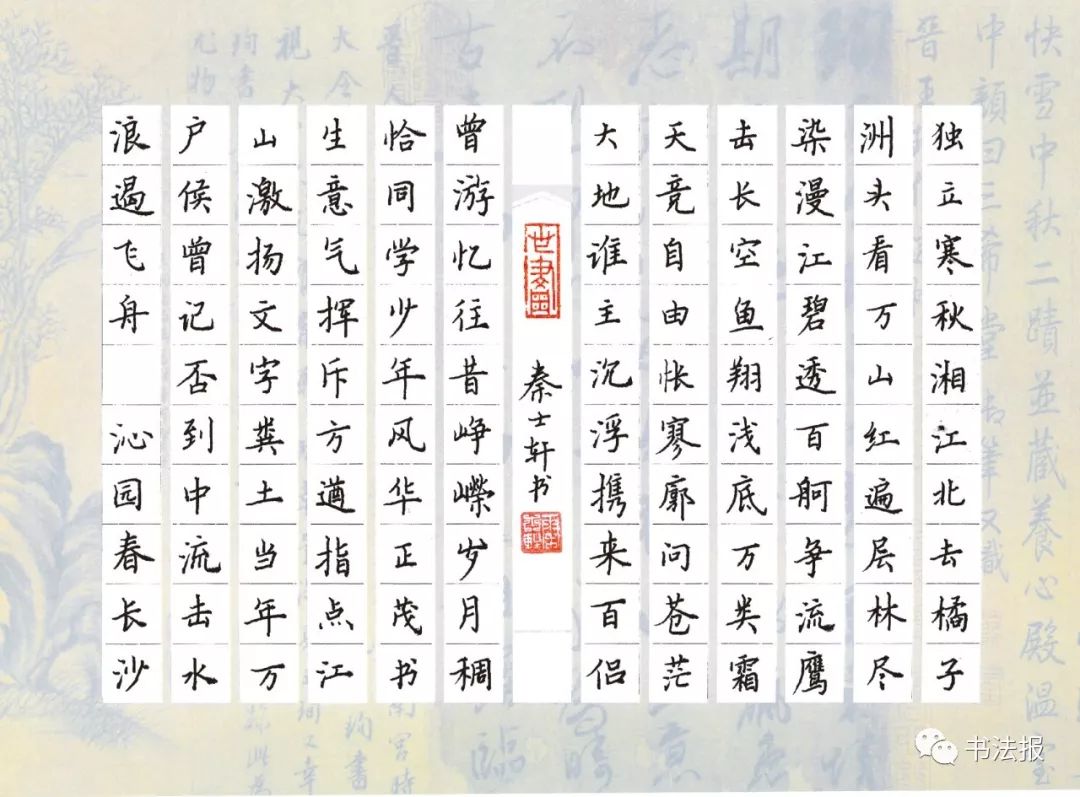 快雪中秋二蹟並藏養心殿温室
中顏曰三希堂
御筆又識
独立寒秋湘江北去橘子
洲头看万山红遍层林尽
染漫江碧透百舸争流鹰
击长空鱼翔浅底万类霜
天竞自由怅寥廓问苍茫
大地谁主沉浮携来百侣
秦士轩书
曾游忆往昔峥嵘岁月稠
恰同学少年风华正茂书
生意气挥斥方遒指点江
山激扬文字粪土当年万
户侯曾记否到中流击水
浪遏飞舟 沁园春长沙
书法报